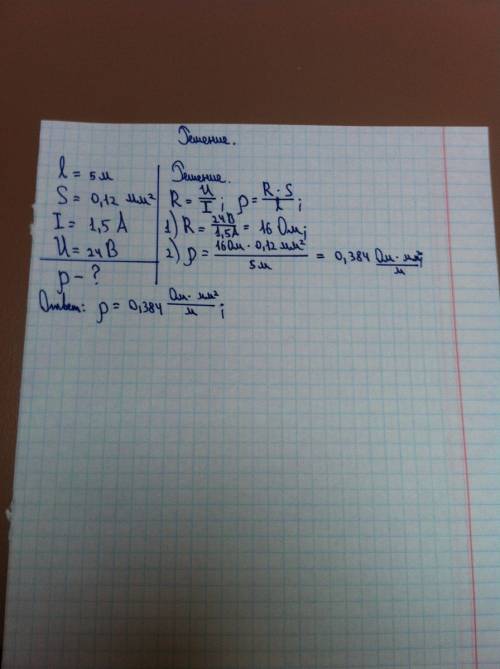 Решение.
l = 5 м
S = 0,12 мм²
I = 1,5 А
U = 24 В
ρ - ?
Решение.
R = U/I ; ρ = R·S/l ;
1) R = 24 В/1,5 А = 16 Ом;
2) ρ = 16 Ом · 0,12 мм²/5 м = 0,384 Ом·мм²/м ;
Ответ: ρ = 0,384 Ом·мм²/м ;